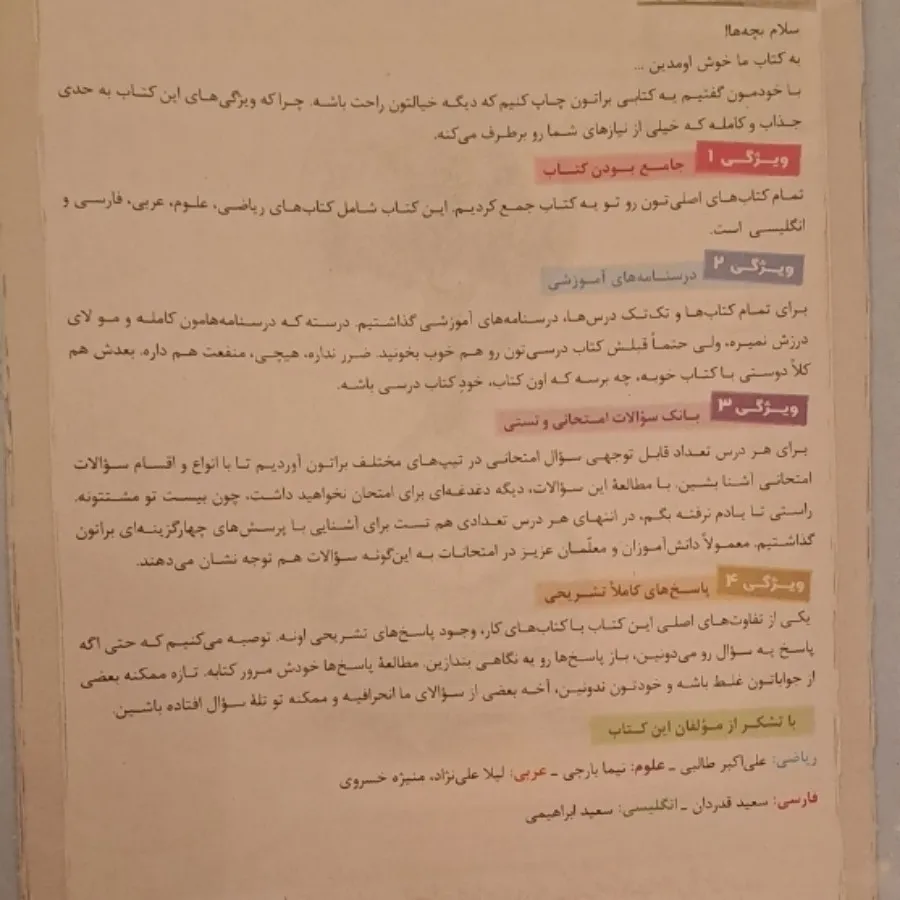 سلام بچه‌ها!
به کتاب ما خوش اومدین ...
با خودمون گفتیم یه کتابی براتون چاپ کنیم که دیگه خیالتون راحت باشه. چرا که ویژگی‌های این کتاب به حدی
جذاب و کامله که خیلی از نیازهای شما رو برطرف می‌کنه.
ویژگی ۱ جامع بودن کتاب
تمام کتاب‌های اصلی‌تون رو تو یه کتاب جمع کردیم. این کتاب شامل کتاب‌های ریاضی، علوم، عربی، فارسی و
انگلیسی است.
ویژگی ۲ درسنامه‌های آموزشی
برای تمام کتاب‌ها و تک‌تک درس‌ها، درسنامه‌های آموزشی گذاشتیم. درسته که درسنامه‌هامون کامله و مو لای
درزش نمیره، ولی حتماً قبلش کتاب درسی‌تون رو هم خوب بخونید. ضرر نداره، هیچی، منفعت هم داره. بعدش هم
کلاً دوستی با کتاب خوبه، چه برسه که اون کتاب، خودِ کتاب درسی باشه.
ویژگی ۳ بانک سؤالات امتحانی و تستی
برای هر درس تعداد قابل توجهی سؤال امتحانی در تیپ‌های مختلف براتون آوردیم تا با انواع و اقسام سؤالات
امتحانی آشنا بشین. با مطالعهٔ این سؤالات، دیگه دغدغه‌ای برای امتحان نخواهید داشت، چون بیست تو مشتتونه.
راستی تا یادم نرفته بگم، در انتهای هر درس تعدادی هم تست برای آشنایی با پرسش‌های چهارگزینه‌ای براتون
گذاشتیم. معمولاً دانش‌آموزان و معلّمان عزیز در امتحانات به این‌گونه سؤالات هم توجه نشان می‌دهند.
ویژگی ۴ پاسخ‌های کاملاً تشریحی
یکی از تفاوت‌های اصلی این کتاب با کتاب‌های کار، وجود پاسخ‌های تشریحی اونه. توصیه می‌کنیم که حتی اگه
پاسخ یه سؤال رو می‌دونین، باز پاسخ‌ها رو یه نگاهی بندازین. مطالعهٔ پاسخ‌ها خودش مرور کتابه. تازه ممکنه بعضی
از جواباتون غلط باشه و خودتون ندونین، آخه بعضی از سؤالای ما انحرافیه و ممکنه تو تلهٔ سؤال افتاده باشین.
با تشکر از مؤلفان این کتاب
ریاضی: علی‌اکبر طالبی ـ علوم: نیما یارجی ـ عربی: لیلا علی‌نژاد، منیژه خسروی
فارسی: سعید قدردان ـ انگلیسی: سعید ابراهیمی